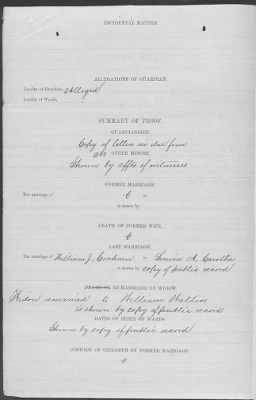 INCIDENTAL MATTER.
ALLEGATIONS OF GUARDIAN.
Loyalty of Guardian, Alleged
Loyalty of Wards,
SUMMARY OF PROOF.
GUARDIANSHIP.
Copy of letters in due form
OTHER MINORS.
Shown by affts of witnesses
FORMER MARRIAGE.
The marriage of to
is shown by
DEATH OF FORMER WIFE.
LAST MARRIAGE.
The marriage of William J. to Louisa
is shown by copy of public record
REMARRIAGE OF WIDOW.
Widow remarried to William Wallin
is shown by copy of public record
DATES OF BIRTH OF WARDS.
Shown by copy of public record
CUSTODY OF CHILDREN BY FORMER MARRIAGE.